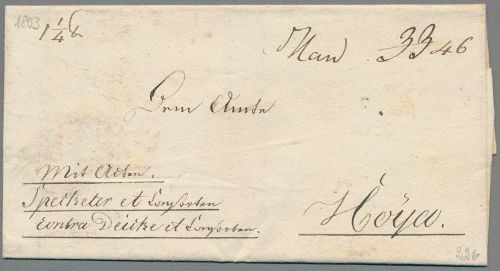 1803
1 1/4 ß
33 46
Dem Amte
Mit Acten.
Specketer et Consorten
contra Deicke et Consorten.
Hoya.
226